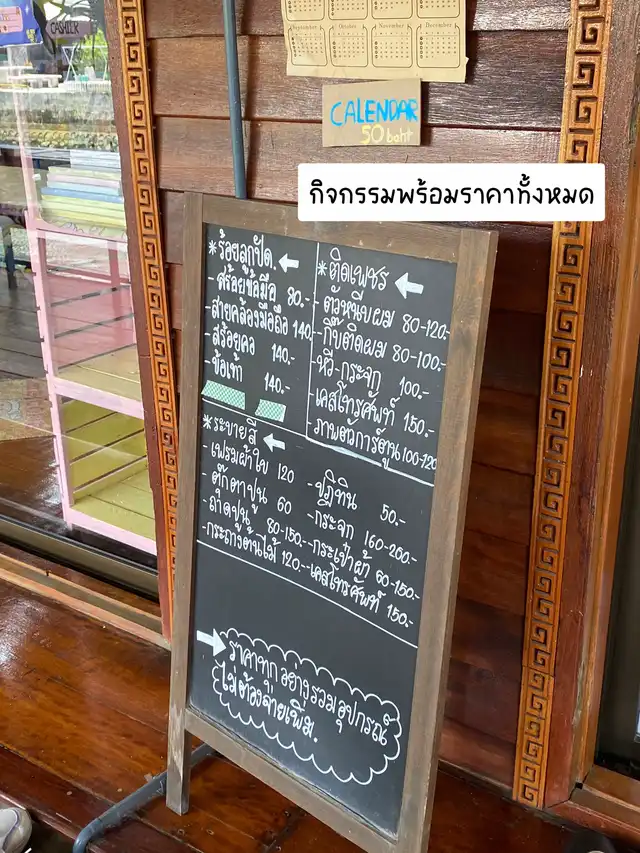 September October November December
CASHIER
CALENDAR
50 baht
กิจกรรมพร้อมราคาทั้งหมด
*ร้อยลูกปัด
- สร้อยข้อมือ 80.-
- สายคล้องมือถือ 140.-
- สร้อยคอ 140.-
- ข้อเท้า 140.-
*ติดเพชร
- ตัวหนีบผม 80-120.-
- กิ๊บติดผม 80-100.-
- หวี-กระจก 100.-
- เคสโทรศัพท์ 150.-
- ภาพตัวการ์ตูน 100-120
*ระบายสี
- เฟรมผ้าใบ 120
- ตุ๊กตาปูน 60
- ถาดปูน 80-150.-
- กระถางต้นไม้ 120.-
- ปฏิทิน 50.-
- กระจก 160-200.-
- กระเป๋าผ้า 60-150.-
- เคสโทรศัพท์ 150.-
ราคาทุกอย่างรวมอุปกรณ์
ไม่ต้องจ่ายเพิ่ม.